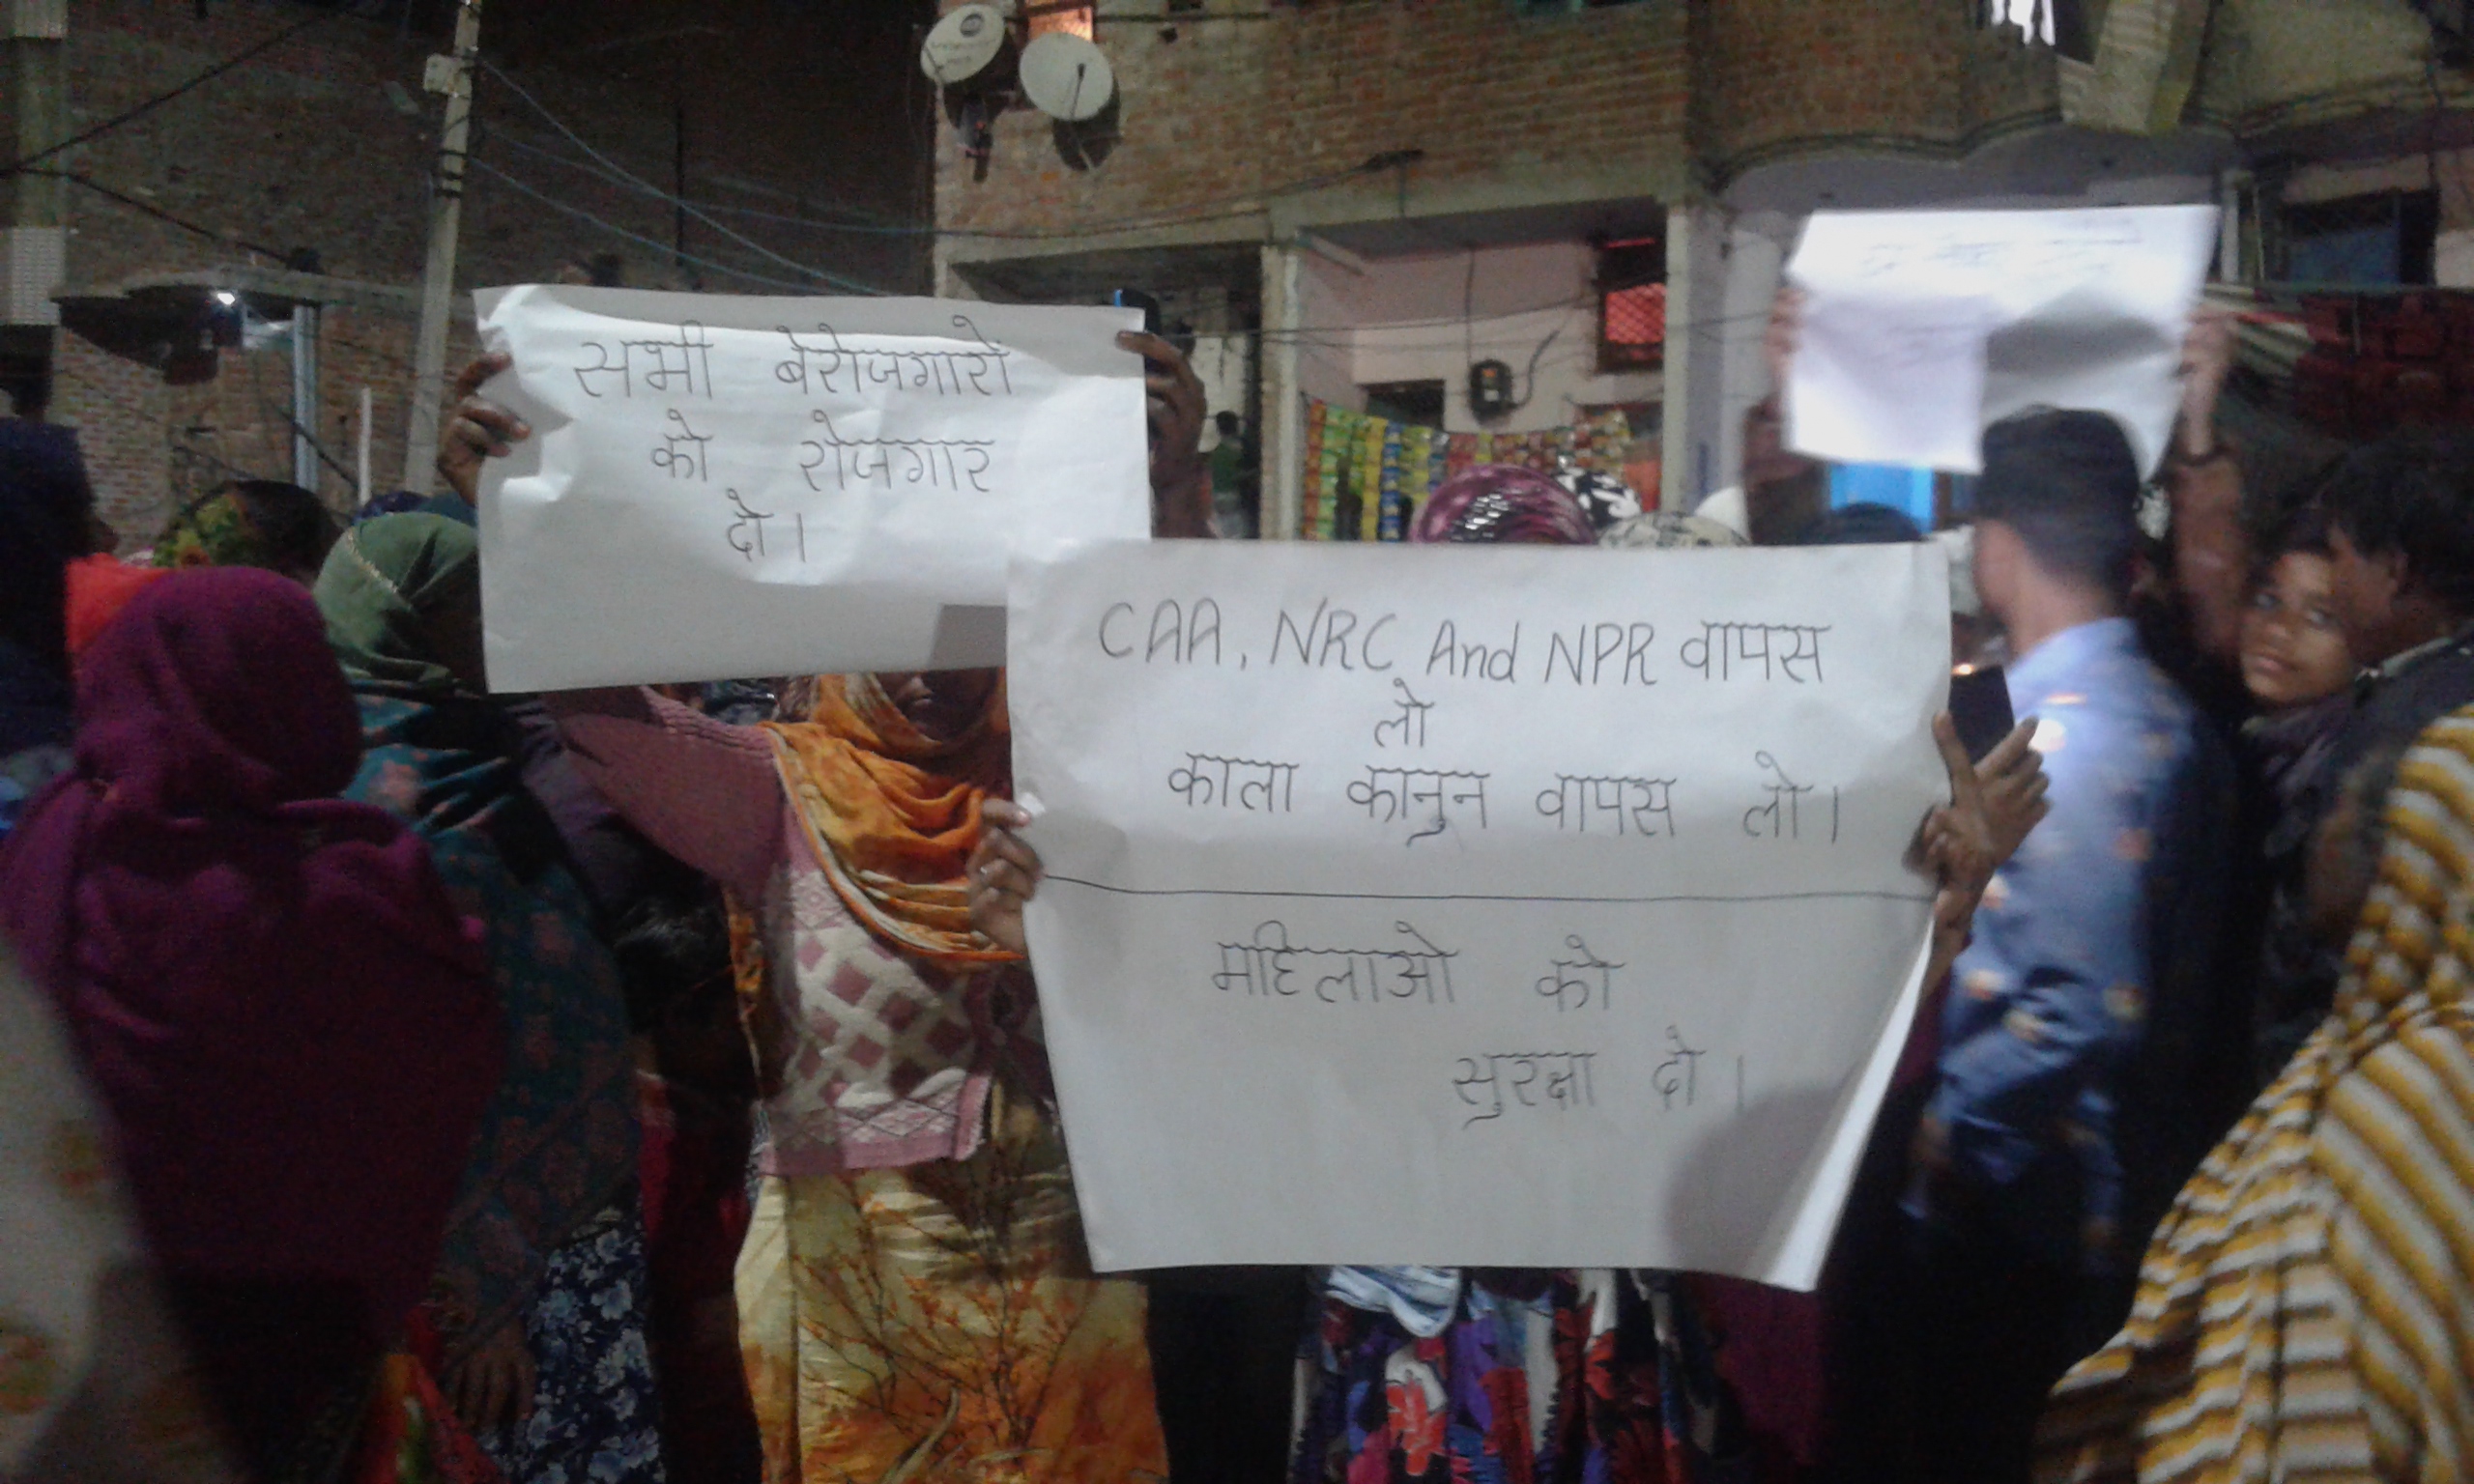 सभी बेरोजगारों
को रोजगार
दो।
CAA, NRC And NPR वापस
लो
काला कानुन वापस लो।
महिलाओ को
सुरक्षा दो।